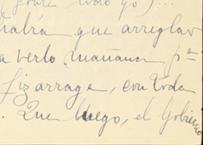 (entre todo yo)...
habrá que arreglar
a verlo mañana pª
Lizarraga, con toda
. Que luego, el Gobierno